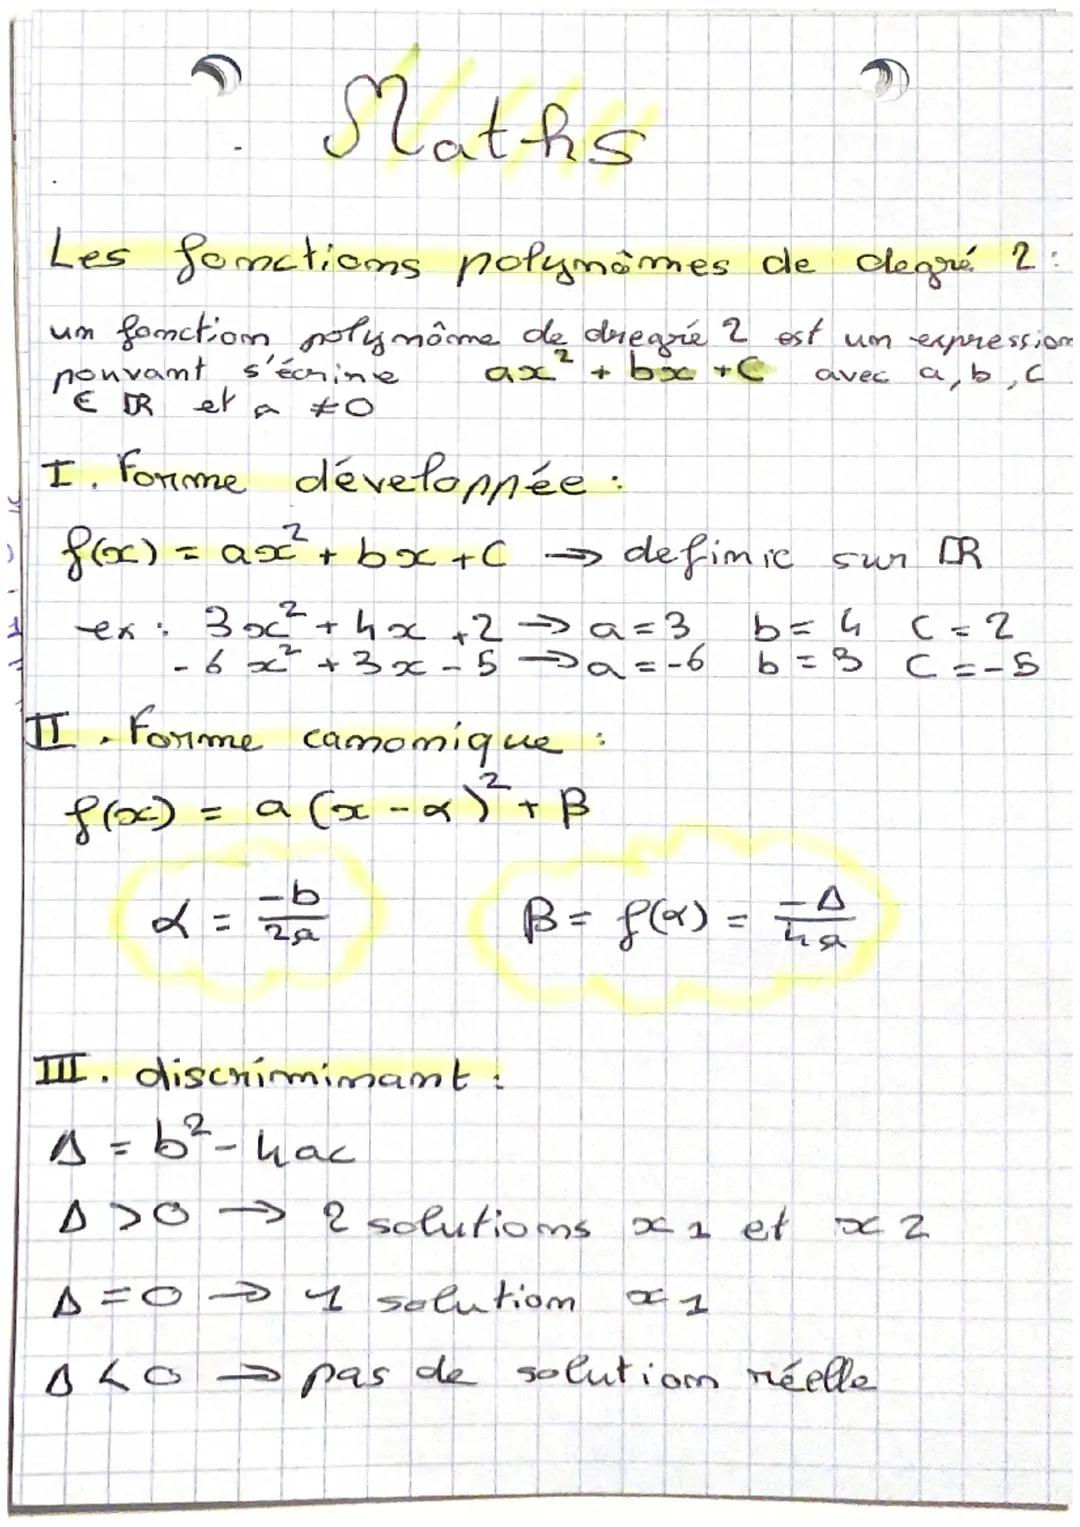 Maths
Les fonctions polynômes de degré 2 :
un fonction polynôme de dregrée 2 est un expression
pouvant s'écrire ax² + bx + C avec a, b, C
∈ ℝ et a ≠ 0
I. Forme développée :
f(x) = ax² + bx + C → definie sur ℝ
ex : 3x² + 4x + 2 → a = 3 b = 4 C = 2
- 6x² + 3x - 5 → a = -6 b = 3 C = -5
II. Forme canonique :
f(x) = a (x - α)² + β
α = -b/2a β = f(α) = -Δ/4a
III. discriminant :
Δ = b² - 4ac
Δ > 0 → 2 solutions x1 et x2
Δ = 0 → 1 solution x1
Δ < 0 → pas de solution réelle